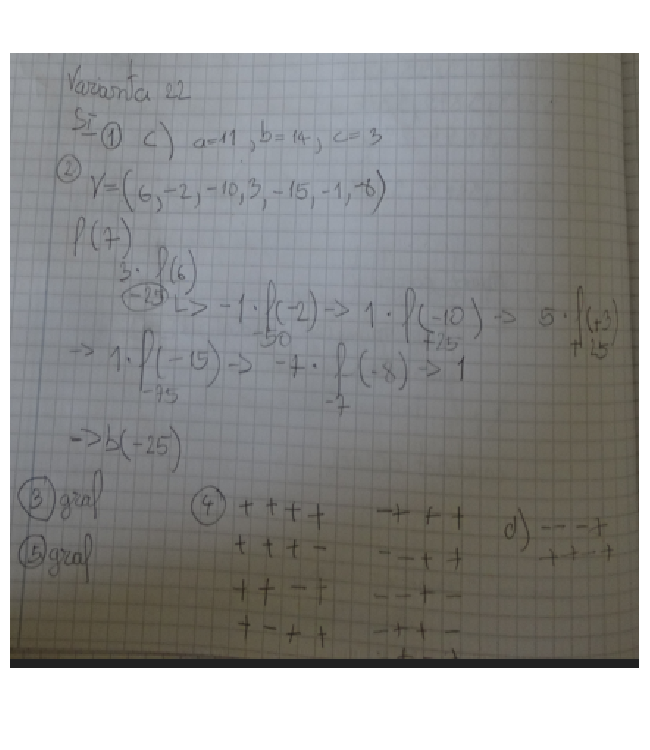 Varianta 22
SI ① c) a=11, b=14, c=3
② V=(6,-2,-10,3,-15,-1,-8)
f(7)
3· f(6)
-25 L> -1·f(-2) -> 1·f(-10) -> 5·f(+3)
-50 +25 +25
-> 1·f(-15) -> -7·f(-8) -> 1
-7
-> b(-25)
③ graf ④ + + + + - + + +
d) - - - +
+ + + - - - + +
+ + - +
⑤ graf
+ + - + - - + -
+ - + + - + + -